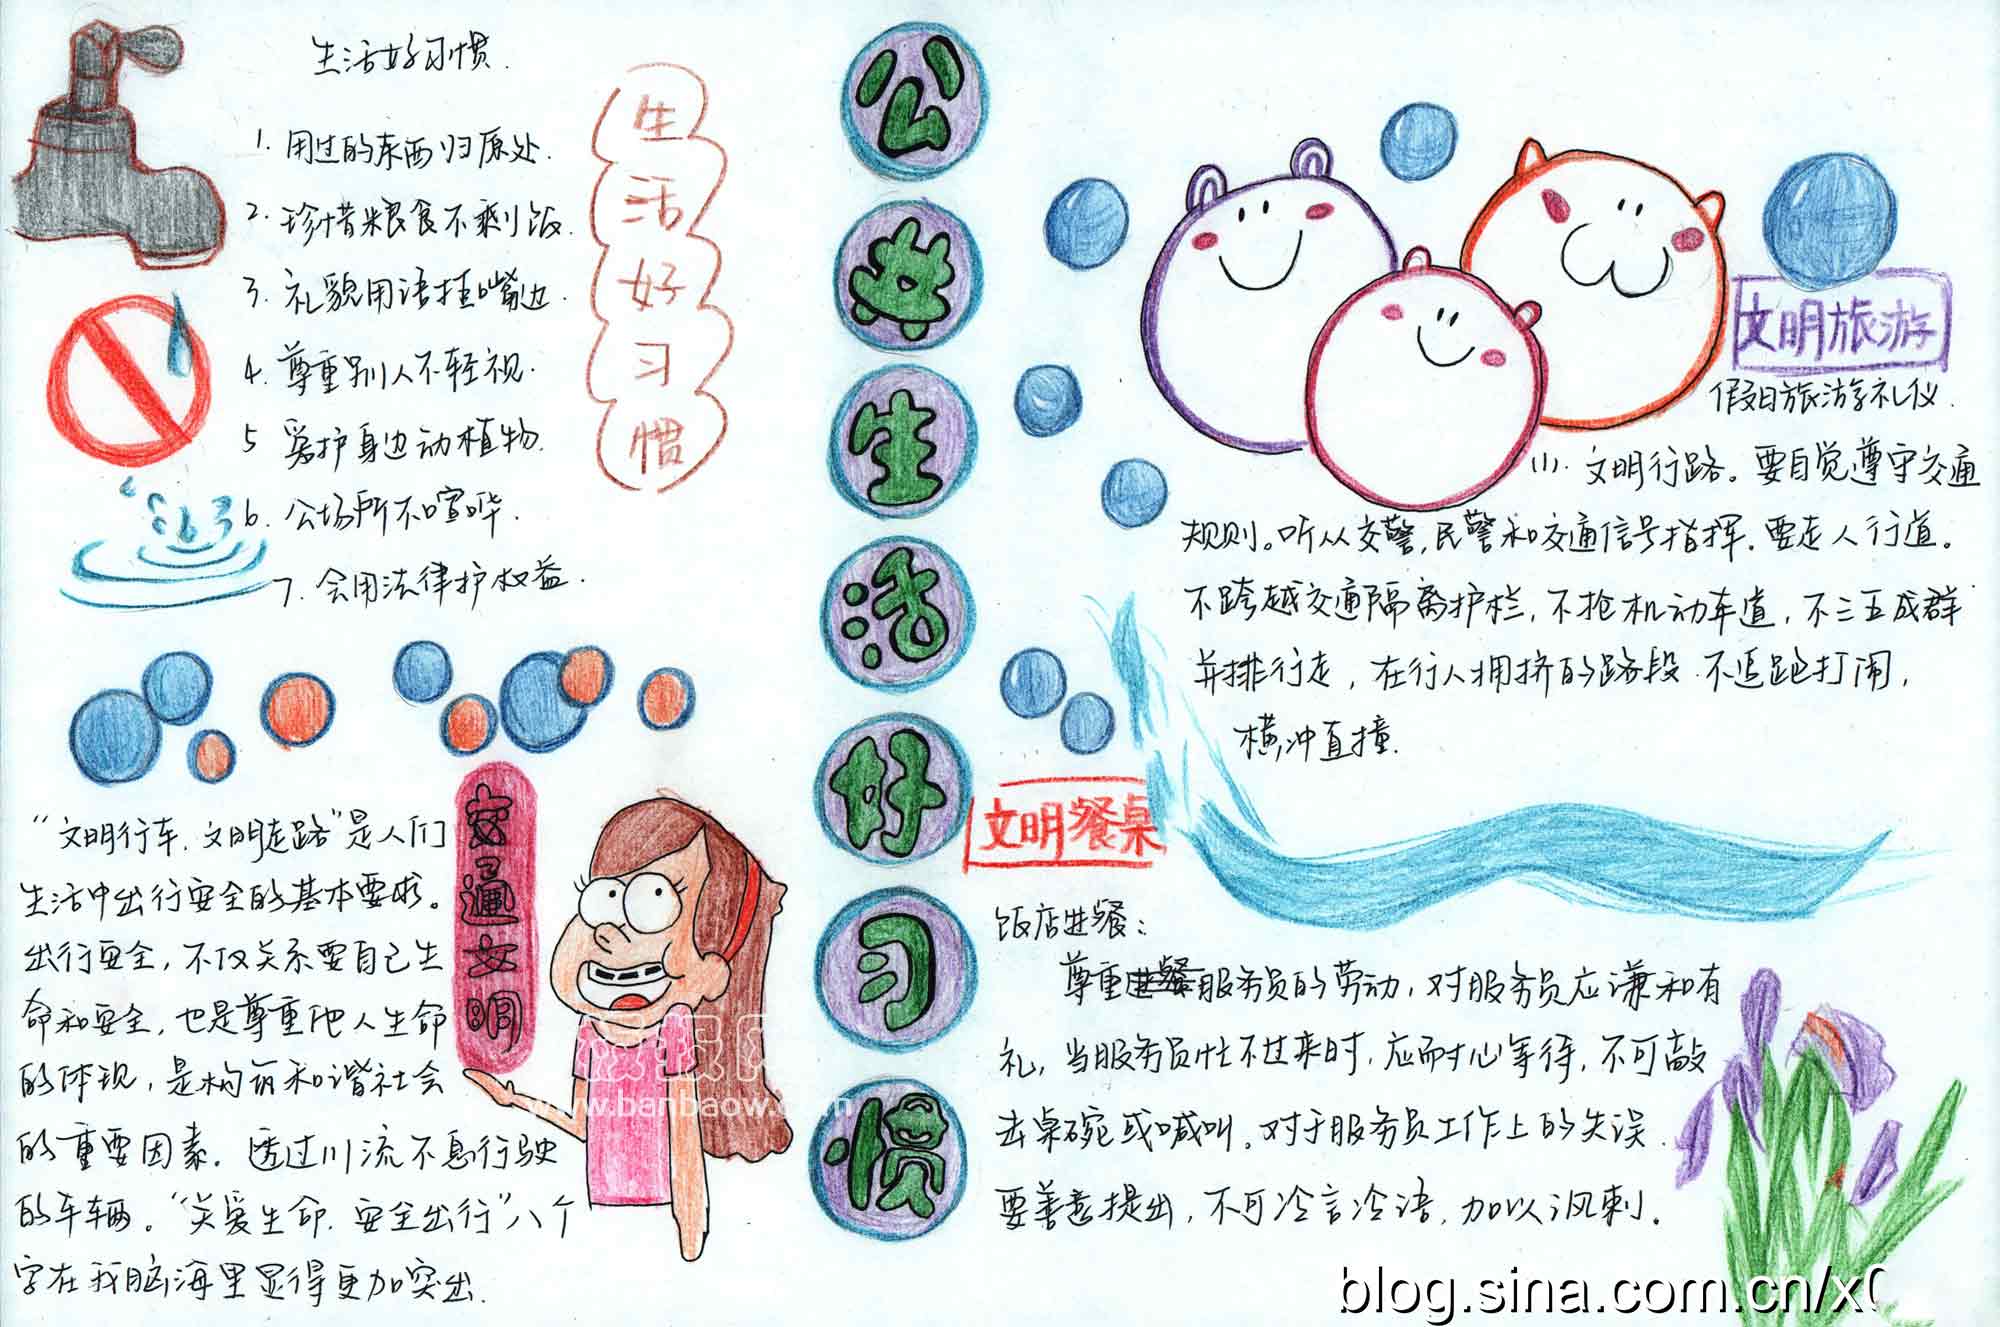 生活好习惯.
1. 用过的东西归原处.
2. 珍惜粮食不剩饭.
3. 礼貌用语挂嘴边.
4. 尊重别人不轻视.
5 爱护身边动植物.
6. 公场所不喧哗.
7. 会用法律护权益.
生活好习惯
公共生活好习惯
文明旅游
假日旅游礼仪.
(1). 文明行路。要自觉遵守交通
规则。听从交警,民警和交通信号指挥.要走人行道。
不跨越交通隔离护栏,不抢机动车道,不三五成群
并排行走,在行人拥挤的路段.不追跑打闹,
横冲直撞.
“文明行车.文明走路”是人们
生活中出行安全的基本要求。
出行安全,不仅关系要自己生
命和安全,也是尊重他人生命
的体现,是构筑和谐社会
的重要因素.透过川流不息行驶
的车辆。“关爱生命.安全出行”八个
字在我脑海里显得更加突出.
文明
文明餐桌
饭店进餐:
尊重服务员的劳动,对服务员应谦和有
礼,当服务员忙不过来时,应耐心等待,不可敲
击桌碗或喊叫。对于服务员工作上的失误.
要善意提出,不可冷言冷语,加以讽刺.
www.banbaow.com
blog.sina.com.cn/x